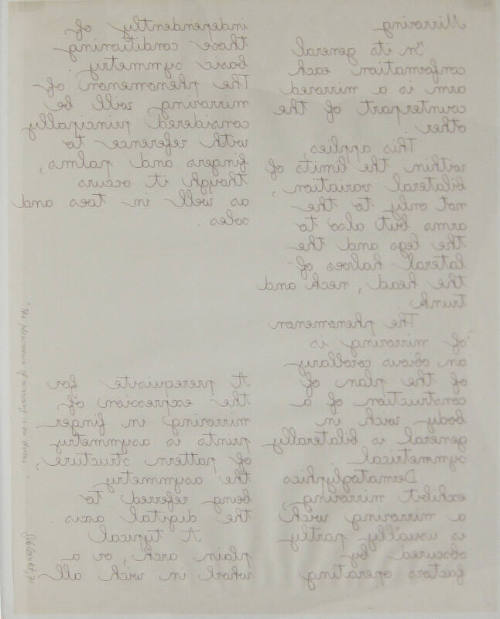 Mirroring
In its general
conformation each
arm is a mirrored
counterpart of the
other.
This applies,
within the limits of
bilateral variation,
not only to the
arms but also to
the legs and the
lateral halves of
the head, neck and
trunk.
The phenomenon
of mirroring is
an obvious corollary
of the plan of
construction of a
body wich in
general is bilaterally
symmetrical
Dermatoglyphics
exhibit mirroring,
a mirroring wich
is usually partly
obscured by
factors operating
independently of
those conditioning
basic symmetry.
The phenomenon of
mirroring will be
considered principally
with reference to
fingers and palms,
though it occurs
as well in toes and
soles.
A prerequisite for
the expression of
mirroring in finger
prints is asymmetry
of pattern structure,
the asymmetry
being referred to
the digital axis
A typical
plain arch, or a
whorl in wich all